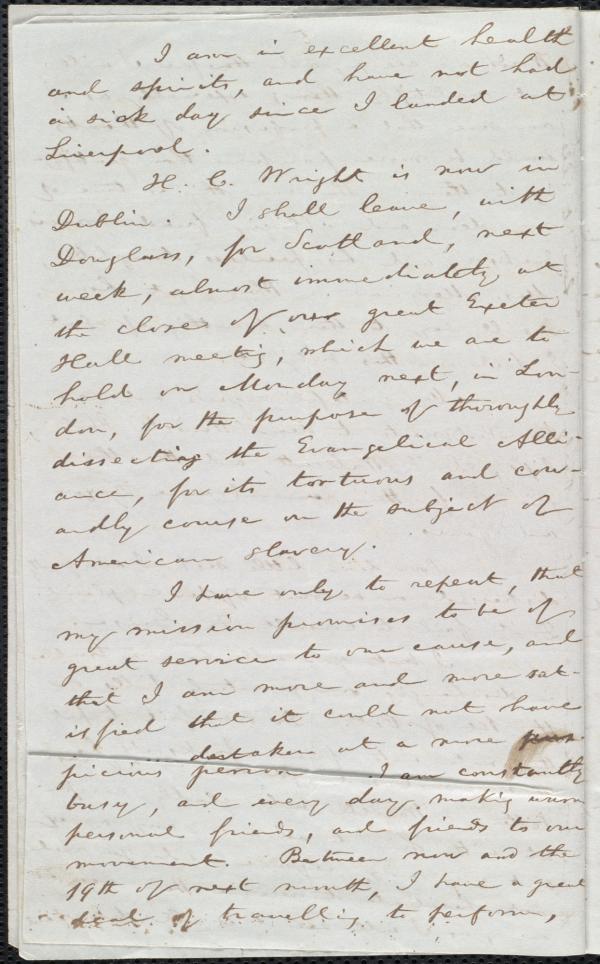 I am in excellent health
and spirits, and have not had
a sick day since I landed at
Liverpool.
H. C. Wright is now in
Dublin. I shall leave, with
Douglass, for Scotland, next
week, almost immediately at
the close of our great Exeter
Hall meeting, which we are to
hold on Monday next, in Lon-
don, for the purpose of thoroughly
dissecting the Evangelical Alli-
ance, for its tortuous and cow-
ardly course on the subject of
American slavery.
I have only to repeat, that
my mission promises to be of
great service to our cause, and
that I am more and more sat-
isfied that it could not have
taken at a more
picious period. I am constantly
busy, and every day making warm
personal friends, and friends to our
movement. Between now and the
19th of next month, I have a great
deal of travelling to perform,